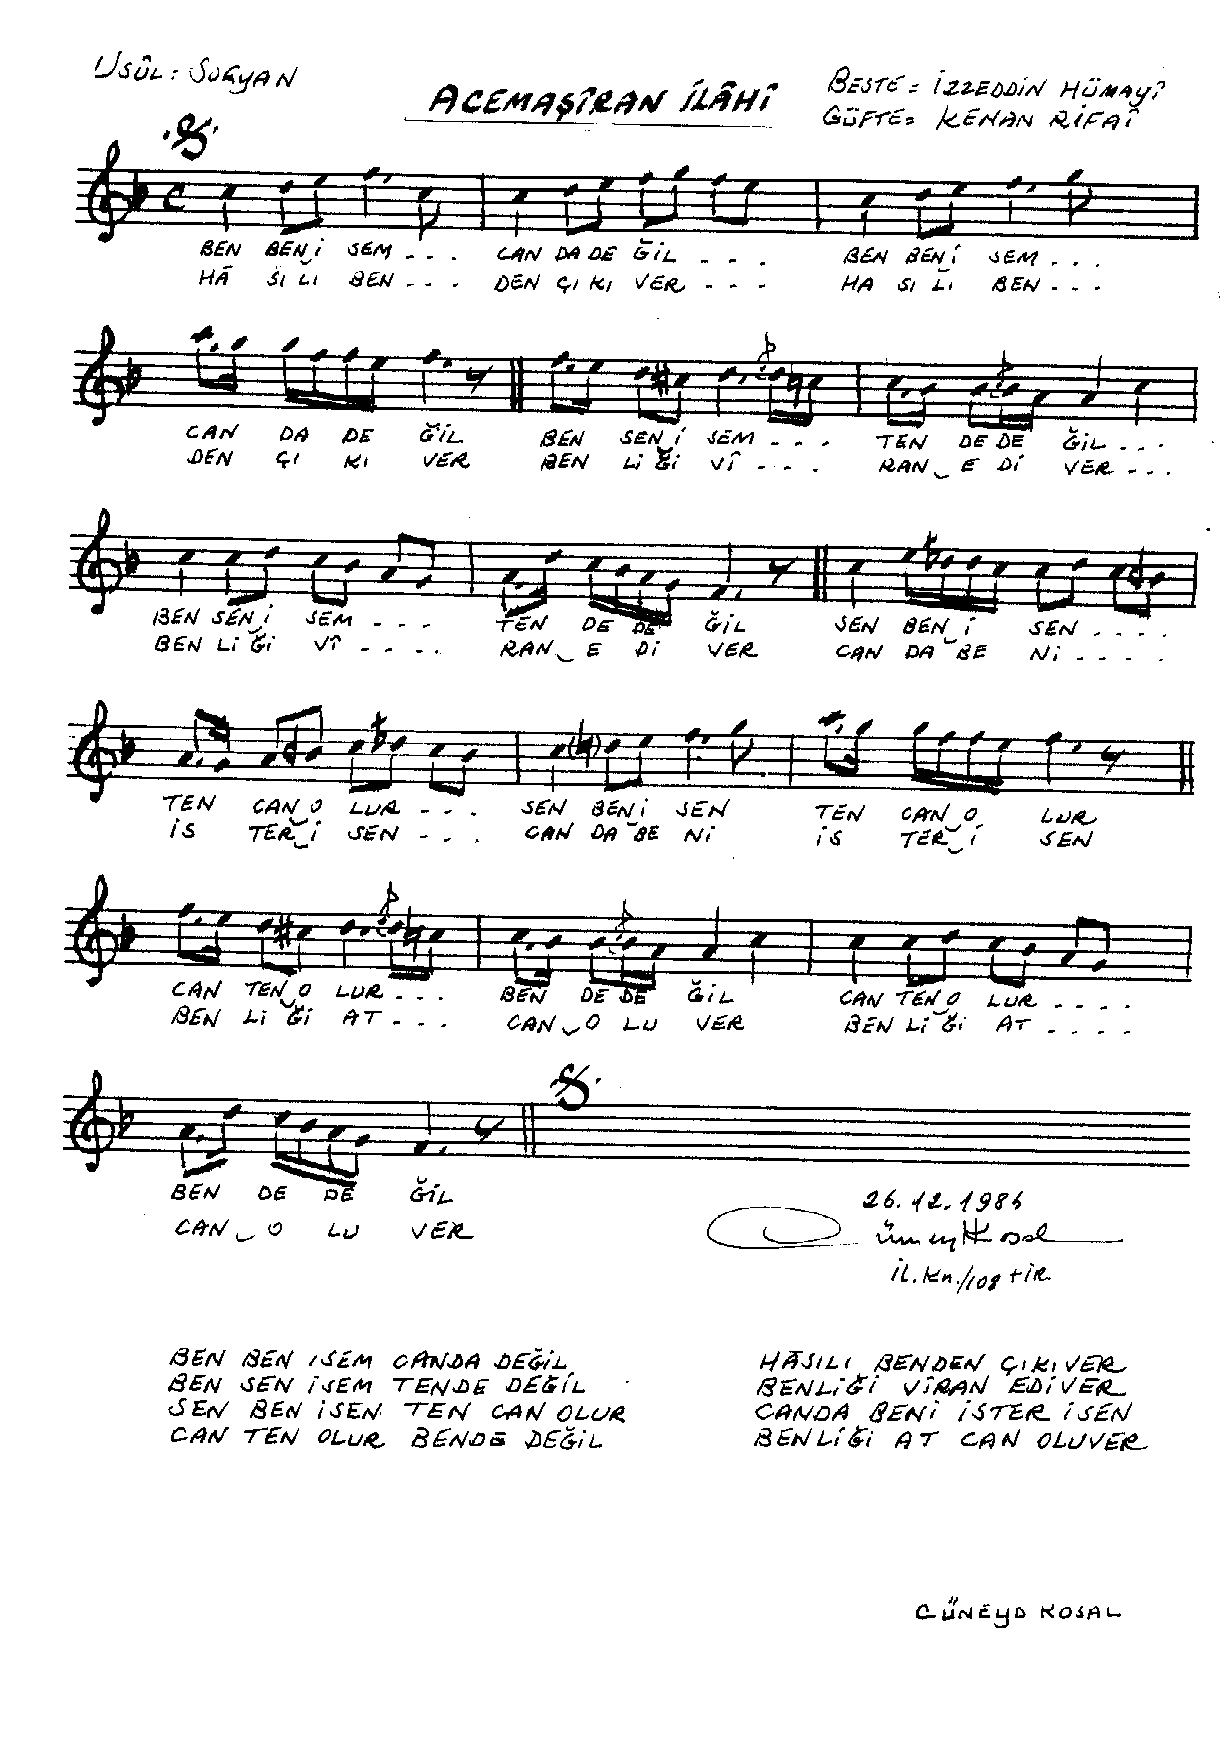 USÛL: SOFYAN
ACEMAŞÎRAN İLÂHÎ
BESTE = İZZEDDİN HÜMAYÎ
GÜFTE= KENAN RİFAÎ
BEN BEN İ SEM . . . CAN DA DE ĞİL . . . BEN BEN İ SEM . . .
HÂ SI LI BEN . . . DEN ÇI KI VER . . . HA SI LI BEN . . .
CAN DA DE ĞİL BEN SEN İ SEM . . . TEN DE DE ĞİL . . .
DEN ÇI KI VER BEN Lİ Ğİ VÎ . . . . RAN E Dİ VER . . .
BEN SEN İ SEM . . . . TEN DE DE ĞİL SEN BEN İ SEN . . . .
BEN Lİ Ğİ VÎ . . . . RAN E Dİ VER CAN DA BE Nİ . . . .
TEN CAN O LUR . . . SEN BEN İ SEN TEN CAN O LUR
İS TER İ SEN . . . CAN DA BE Nİ İS TER İ SEN
CAN TEN O LUR . . . BEN DE DE ĞİL CAN TEN O LUR . . . .
BEN Lİ Ğİ AT . . . CAN O LU VER BEN Lİ Ğİ AT . . . .
BEN DE DE ĞİL
CAN O LU VER
26.12.198
Cüneyd Kosal
İL. Kn./108 +İR.
BEN BEN İSEM CANDA DEĞİL
BEN SEN İSEM TENDE DEĞİL
SEN BEN İSEN TEN CAN OLUR
CAN TEN OLUR BENDE DEĞİL
HÂSILI BENDEN ÇIKIVER
BENLİĞİ VÎRAN EDİVER
CANDA BENİ İSTER İSEN
BENLİĞİ AT CAN OLUVER
CÜNEYD KOSAL